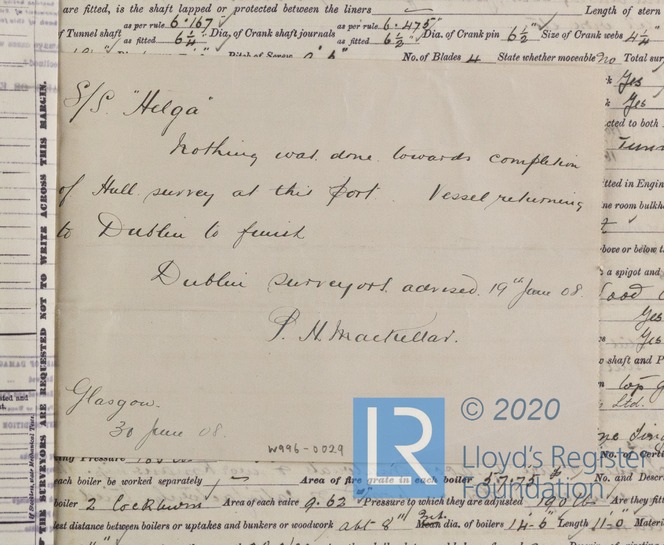 are fitted, is the shaft lapped or protected between the liners
Length of stern
f Tunnel shaft as per rule 6.167 as fitted 6¼ Dia. of Crank shaft journals as per rule 6.475 as fitted 6½ Dia. of Crank pin 6½" Size of Crank webs 4¼
No. of Blades 4 State whether moveable No Total sur
Yes
Yes
cted to both
itted in Engin
ne room bulkh
bove or below t
a spigot and
Yes
Yes
w shaft and P
top
Ltd.
THE SURVEYORS ARE REQUESTED NOT TO WRITE ACROSS THIS MARGIN.
S/S. "Helga"
Nothing was done towards completion
of Hull survey at this Port. Vessel returning
to Dublin to finish
Dublin surveyors advised 19th June 08.
P. N. Mackellar.
Glasgow.
30 June 08.
W996-0029
LR
© 2020
Lloyd's Register
Foundation
No. of Certi
each boiler be worked separately Area of fire grate in each boiler 57.75 No. and Descr
boiler 2 Cockburn Area of each valve 9.62 Pressure to which they are adjusted 190 lb Are they fit
test distance between boilers or uptakes and bunkers or woodwork abt 8" Mean dia. of boilers 14-6 Length 11-0 Materi